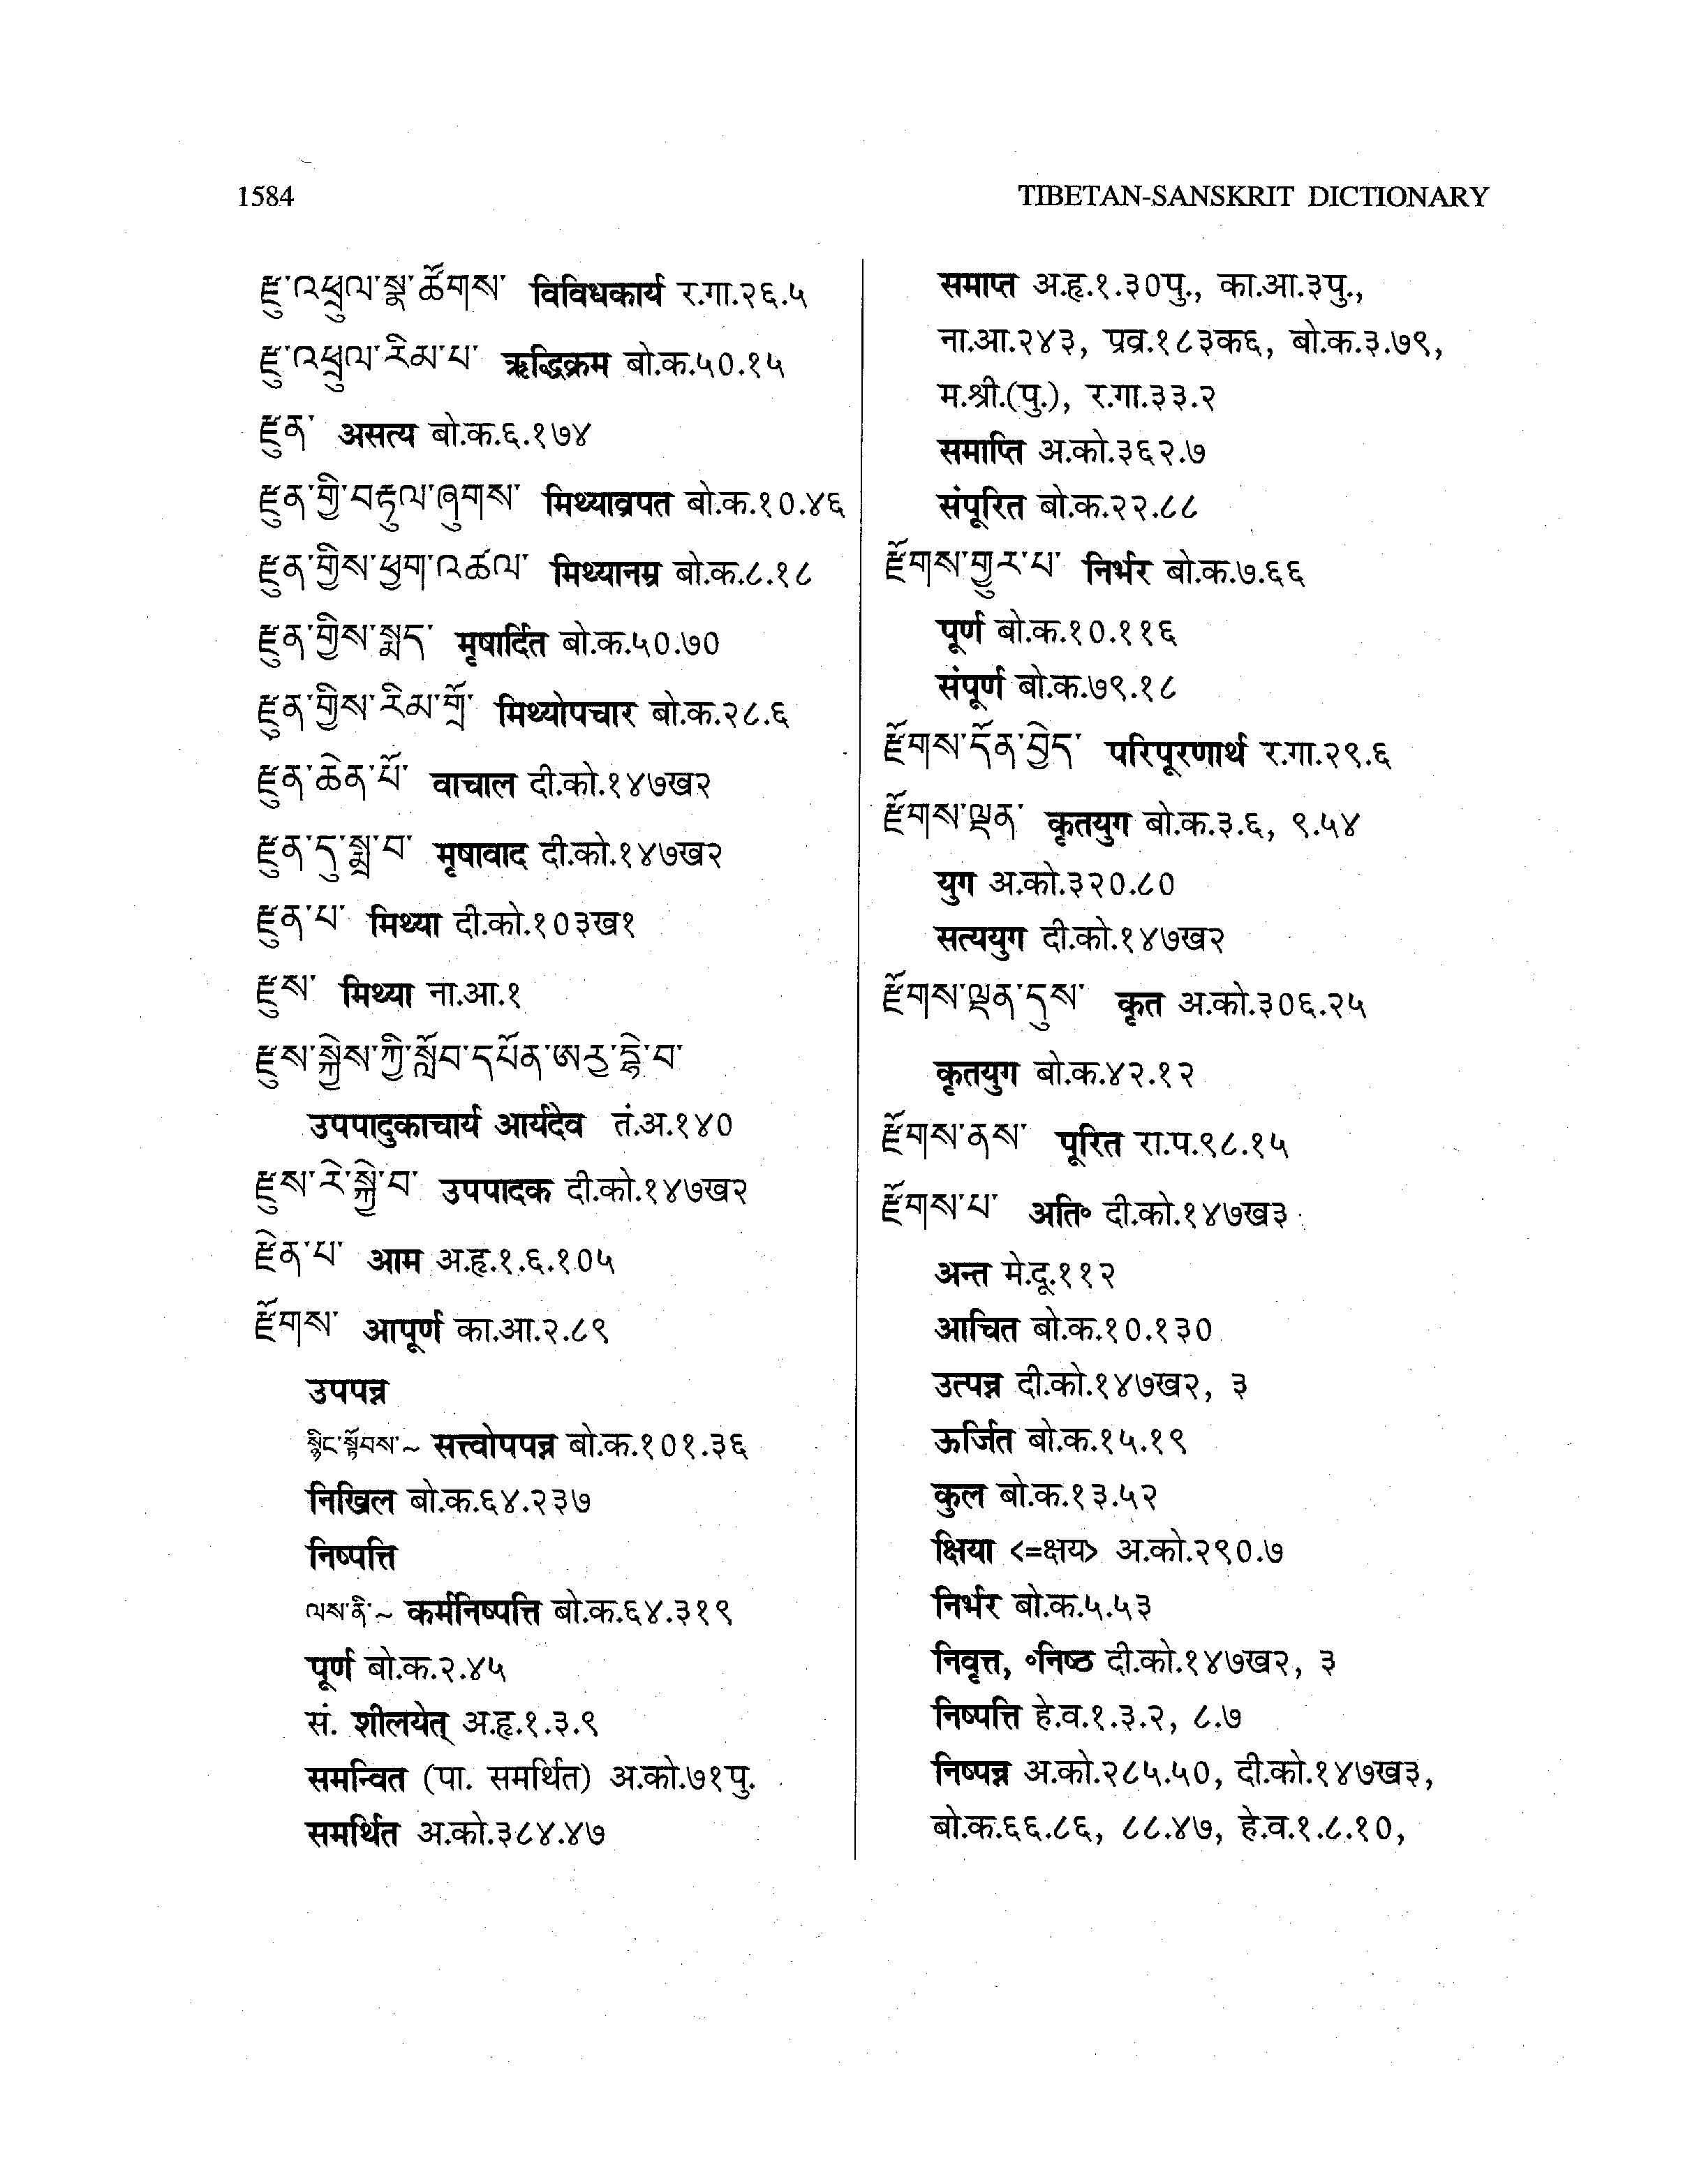 1584
TIBETAN-SANSKRIT DICTIONARY
རྫུ་འཕྲུལ་སྣ་ཚོགས་ विविधकार्य र.गा.२६.५
རྫུ་འཕྲུལ་རིམ་པ་ ऋद्धिक्रम बो.क.५०.१५
རྫུན་ असत्य बो.क.६.१७४
རྫུན་གྱི་བརྟུལ་ཞུགས་ मिथ्याव्रपत बो.क.१०.४६
རྫུན་གྱིས་ཕྱག་འཚལ་ मिथ्यानम्र बो.क.८.१८
རྫུན་གྱིས་སྨད་ मृषार्दित बो.क.५०.७०
རྫུན་གྱིས་རིམ་གྲོ་ मिथ्योपचार बो.क.२८.६
རྫུན་ཆེན་པོ་ वाचाल दी.को.१४७ख२
རྫུན་དུ་སྨྲ་བ་ मृषावाद दी.को.१४७ख२
རྫུན་པ་ मिथ्या दी.को.१०३ख१
རྫུས་ मिथ्या ना.आ.१
རྫུས་སྐྱེས་ཀྱི་སློབ་དཔོན་ཨརྱ་དྷེ་བ་
उपपादुकाचार्य आर्यदेव तं.अ.१४०
རྫུས་རེ་སྐྱེ་བ་ उपपादक दी.को.१४७ख२
རྫེན་པ་ आम अ.हृ.१.६.१०५
རྫོགས་ आपूर्ण का.आ.२.८९
उपपन्न
སྙིང་སྟོབས་~ सत्त्वोपपन्न बो.क.१०१.३६
निखिल बो.क.६४.२३७
निष्पत्ति
ལས་ནི་~ कर्मनिष्पत्ति बो.क.६४.३१९
पूर्ण बो.क.२.४५
सं. शीलयेत् अ.हृ.१.३.९
समन्वित (पा. समर्थित) अ.को.७१पु.
समर्थित अ.को.३८४.४७
समाप्त अ.हृ.१.३०पु., का.आ.३पु.,
ना.आ.२४३, प्रव्र.१८३क६, बो.क.३.७९,
म.श्री.(पु.), र.गा.३३.२
समाप्ति अ.को.३६२.७
संपूरित बो.क.२२.८८
རྫོགས་གྱུར་པ་ निर्भर बो.क.७.६६
पूर्ण बो.क.१०.११६
संपूर्ण बो.क.७९.१८
རྫོགས་དོན་བྱེད་ परिपूरणार्थ र.गा.२९.६
རྫོགས་ལྡན་ कृतयुग बो.क.३.६, ९.५४
युग अ.को.३२०.८०
सत्ययुग दी.को.१४७ख२
རྫོགས་ལྡན་དུས་ कृत अ.को.३०६.२५
कृतयुग बो.क.४२.१२
རྫོགས་ནས་ पूरित रा.प.९८.१५
རྫོགས་པ་ अति॰ दी.को.१४७ख३
अन्त मे.दू.११२
आचित बो.क.१०.१३०
उत्पन्न दी.को.१४७ख२, ३
ऊर्जित बो.क.१५.१९
कुल बो.क.१३.५२
क्षिया <=क्षय> अ.को.२९०.७
निर्भर बो.क.५.५३
निवृत्त, ॰निष्ठ दी.को.१४७ख२, ३
निष्पत्ति हे.व.१.३.२, ८.७
निष्पन्न अ.को.२८५.५०, दी.को.१४७ख३,
बो.क.६६.८६, ८८.४७, हे.व.१.८.१०,